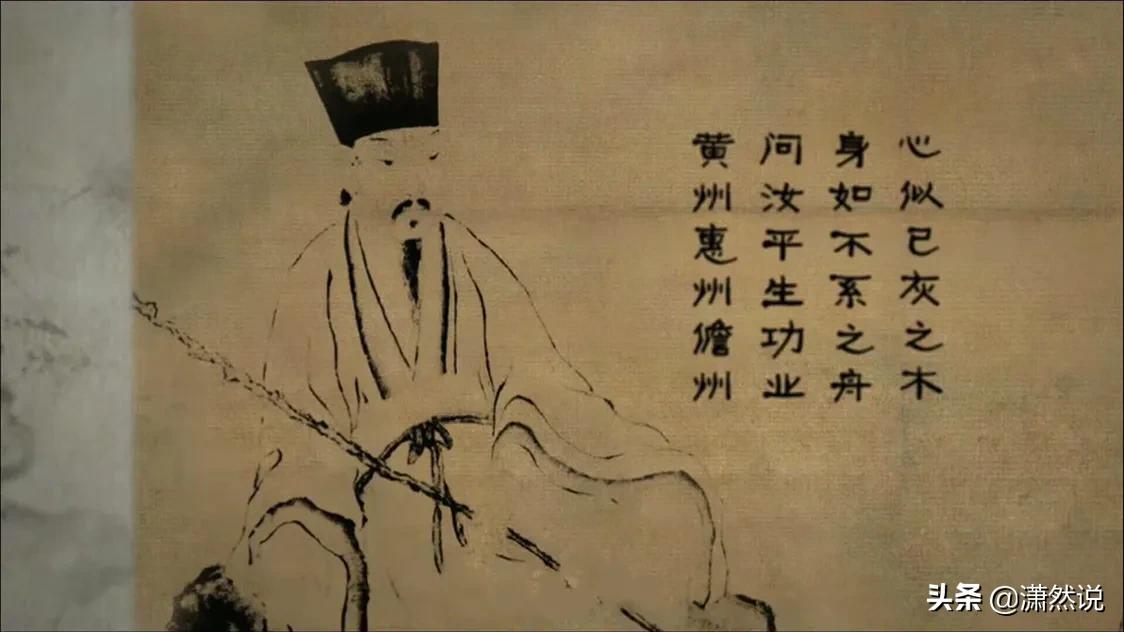 心似已灰之木
身如不系之舟
问汝平生功业
黄州惠州儋州
头条 @潇然说